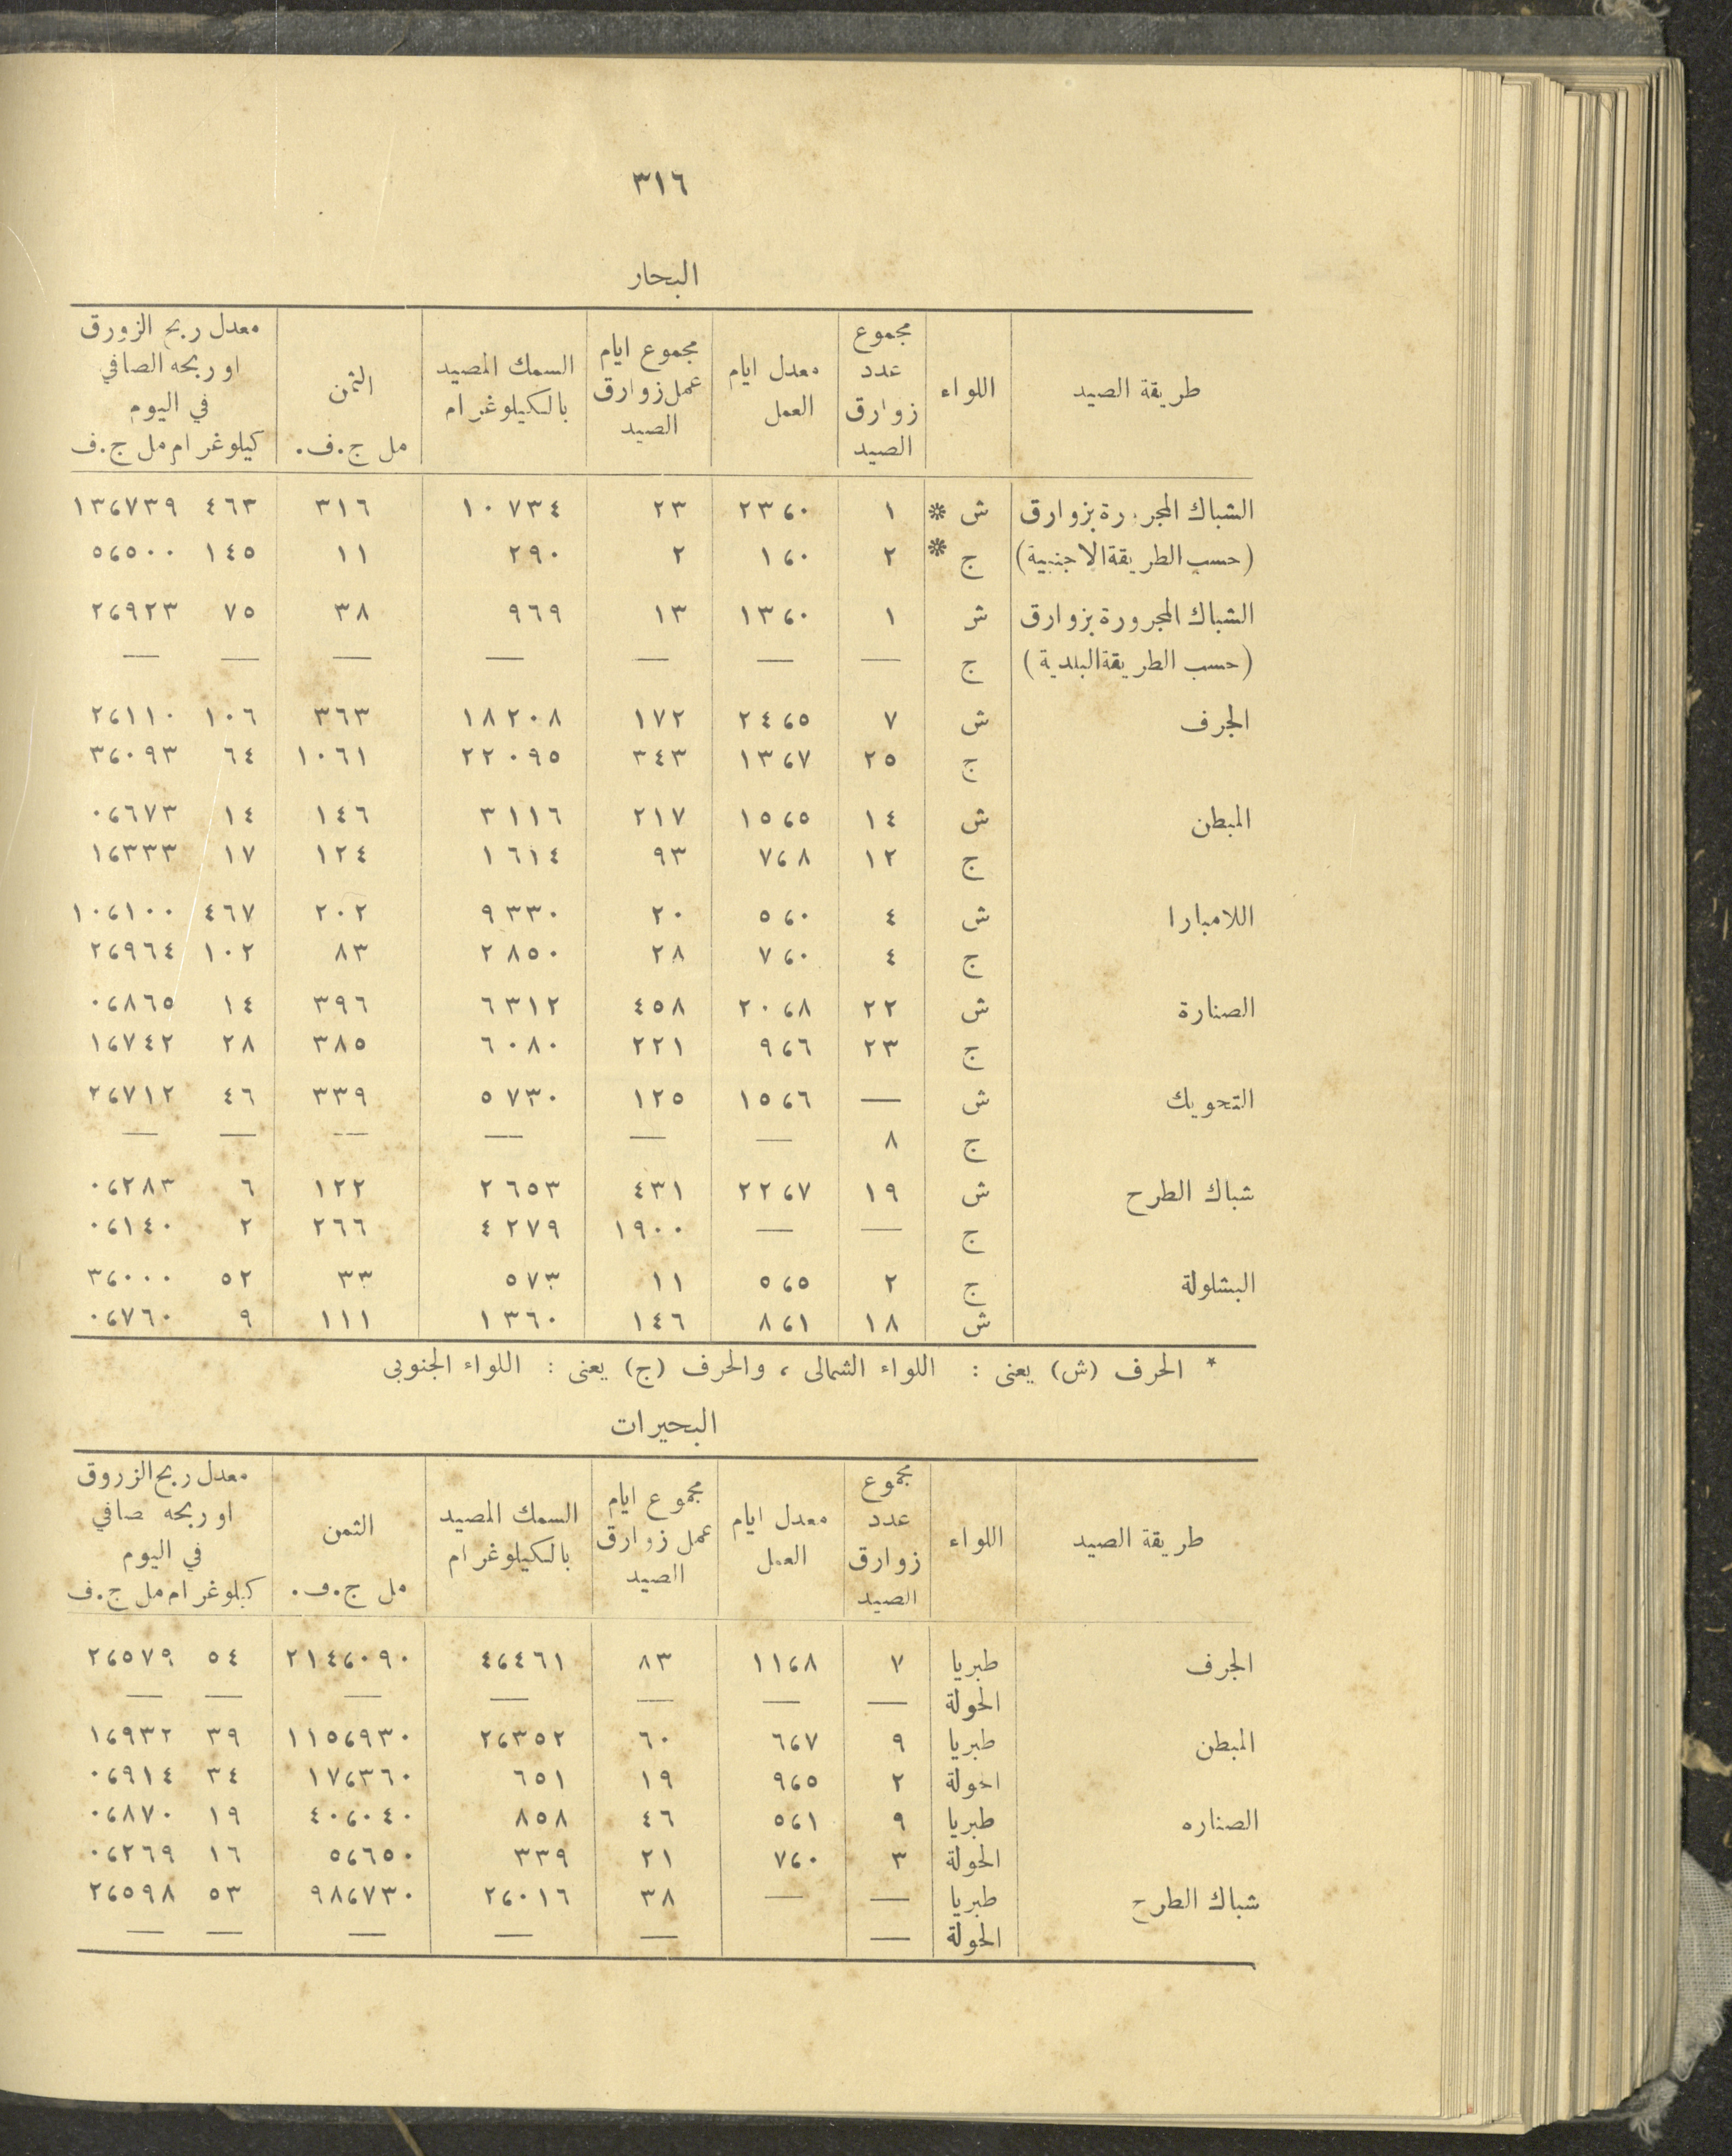 ٣١٦
البحار
طريقة الصيد | اللواء | مجموع عدد زوارق الصيد | معدل ايام العمل | مجموع ايام عمل زوارق الصيد | السمك المصيد بالكيلوغرام | الثمن مل ج.ف. | معدل ربح الزورق او ربحه الصافي في اليوم كيلوغرام مل ج.ف
الشباك المجرورة بزوارق ش * ١ ٢٣،٠ ٢٣ ١٠٧٣٤ ٣١٦ ٤٦٣ ١٣،٧٣٩
(حسب الطريقة الاجنبية) ج * ٢ ١،٠ ٢ ٢٩٠ ١١ ١٤٥ ٥،٥٠٠
الشباك المجرورة بزوارق ش ١ ١٣،٠ ١٣ ٩٦٩ ٣٨ ٧٥ ٢،٩٢٣
(حسب الطريقة البلدية) ج — — — — — — —
الجرف ش ٧ ٢٤،٥ ١٧٢ ١٨٢٠٨ ٣٦٣ ١٠٦ ٢،١١٠
ج ٢٥ ١٣،٧ ٣٤٣ ٢٢٠٩٥ ١٠٦١ ٦٤ ٣،٠٩٣
المبطن ش ١٤ ١٥،٥ ٢١٧ ٣١١٦ ١٤٦ ١٤ ٠،٦٧٣
ج ١٢ ٧،٨ ٩٣ ١٦١٤ ١٢٤ ١٧ ١،٣٣٣
اللامبارا ش ٤ ٥،٠ ٢٠ ٩٣٣٠ ٢٠٢ ٤٦٧ ١٠،١٠٠
ج ٤ ٧،٠ ٢٨ ٢٨٥٠ ٨٣ ١٠٢ ٢،٩٦٤
الصنارة ش ٢٢ ٢٠،٨ ٤٥٨ ٦٣١٢ ٣٩٦ ١٤ ٠،٨٦٥
ج ٢٣ ٩،٦ ٢٢١ ٦٠٨٠ ٣٨٥ ٢٨ ١،٧٤٢
التحويك ش — ١٥،٦ ١٢٥ ٥٧٣٠ ٣٣٩ ٤٦ ٢،٧١٢
ج ٨ — — — — — —
شباك الطرح ش ١٩ ٢٢،٧ ٤٣١ ٢٦٥٣ ١٢٢ ٦ ٠،٢٨٣
ج — — ١٩٠٠ ٤٢٧٩ ٢٦٦ ٢ ٠،١٤٠
البشلولة ج ٢ ٥،٥ ١١ ٥٧٣ ٣٣ ٥٢ ٣،٠٠٠
ش ١٨ ٨،١ ١٤٦ ١٣٦٠ ١١١ ٩ ٠،٧٦٠
* الحرف (ش) يعنى : اللواء الشمالى ، والحرف (ج) يعنى : اللواء الجنوبى
البحيرات
طريقة الصيد | اللواء | مجموع عدد زوارق الصيد | معدل ايام العمل | مجموع ايام عمل زوارق الصيد | السمك المصيد بالكيلوغرام | الثمن مل ج.ف. | معدل ربح الزروق او ربحه صافي في اليوم كيلوغرام مل ج.ف
الجرف طبريا ٧ ١١،٨ ٨٣ ٤،٤٦١ ٢١٤،٠٩٠ ٥٤ ٢،٥٧٩
الحولة — — — — — — —
المبطن طبريا ٩ ٦،٧ ٦٠ ٢،٣٥٢ ١١٥،٩٣٠ ٣٩ ١،٩٣٢
الحولة ٢ ٩،٥ ١٩ ٦٥١ ١٧،٣٦٠ ٣٤ ٠،٩١٤
الصناره طبريا ٩ ٥،١ ٤٦ ٨٥٨ ٤٠،٠٤٠ ١٩ ٠،٨٧٠
الحولة ٣ ٧،٠ ٢١ ٣٣٩ ٥،٦٥٠ ١٦ ٠،٢٦٩
شباك الطرح طبريا — — ٣٨ ٢،٠١٦ ٩٨،٧٣٠ ٥٣ ٢،٥٩٨
الحولة — — — — — —